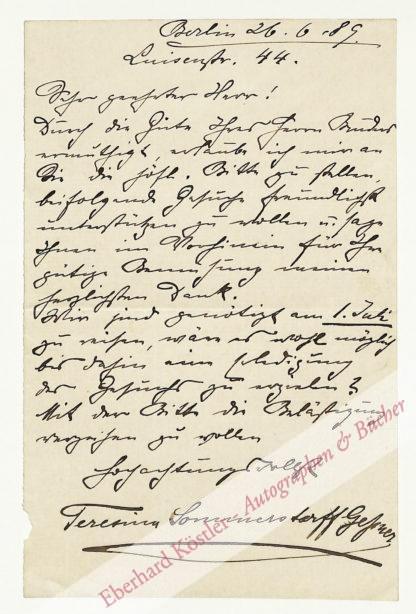 Berlin 26.6.89.
Luisenstr. 44.
Sehr geehrter Herr!
Durch die Güte Ihres Herrn Bruders
ermuthigt, erlaube ich mir an
Sie die höfl. Bitte zu stellen,
beifolgende Gesuche freundlichst
unterstützen zu wollen u. sage
Ihnen im Vorhinein für Ihre
gütige Bemühung meinen
herzlichsten Dank.
Wir sind genötigt am 1. Juli
zu reisen, wäre es wohl möglich
bis dahin eine Erledigung
des Gesuchs zu erzielen?
Mit der Bitte die Belästigung
verzeihen zu wollen
Hochachtungsvollst
Teresina Sommerstorff Geßner
Eberhard Köstler Autographen & Bücher